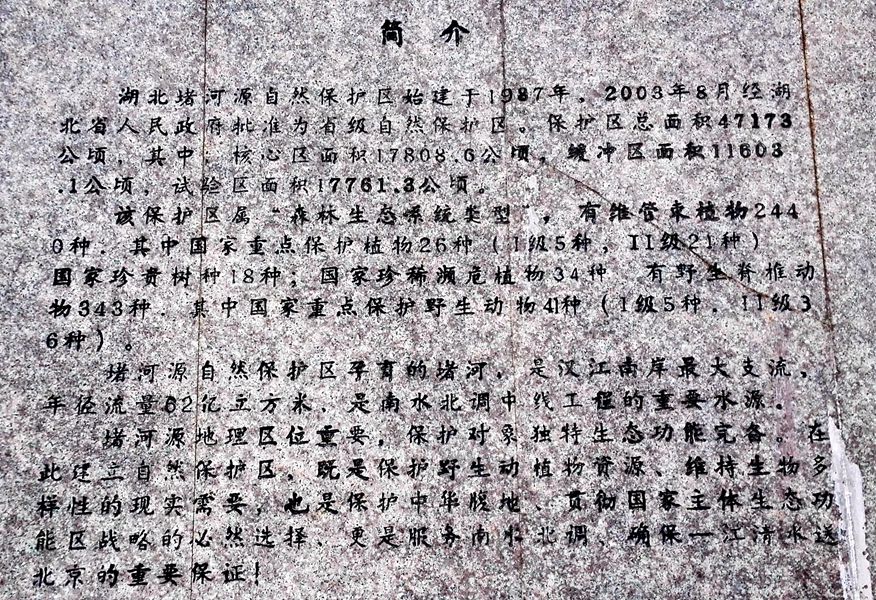 简介
湖北堵河源自然保护区始建于1987年，2003年8月经湖
北省人民政府批准为省级自然保护区。保护区总面积47173
公顷，其中：核心区面积17808.6公顷，缓冲区面积11603
.1公顷，试验区面积17761.3公顷。
该保护区属“森林生态系统类型”，有维管束植物244
0种，其中国家重点保护植物26种（I级5种，II级21种）
国家珍贵树种18种；国家珍稀濒危植物34种 有野生脊椎动
物343种，其中国家重点保护野生动物41种（I级5种，II级3
6种）。
堵河源自然保护区孕育的堵河，是汉江南岸最大支流，
年径流量62亿立方米，是南水北调中线工程的重要水源。
堵河源地理区位重要，保护对象独特生态功能完备。在
此建立自然保护区，既是保护野生动植物资源、维持生物多
样性的现实需要，也是保护中华腹地、贯彻国家主体生态功
能区战略的必然选择、更是服务南水北调，确保一江清水送
北京的重要保证！